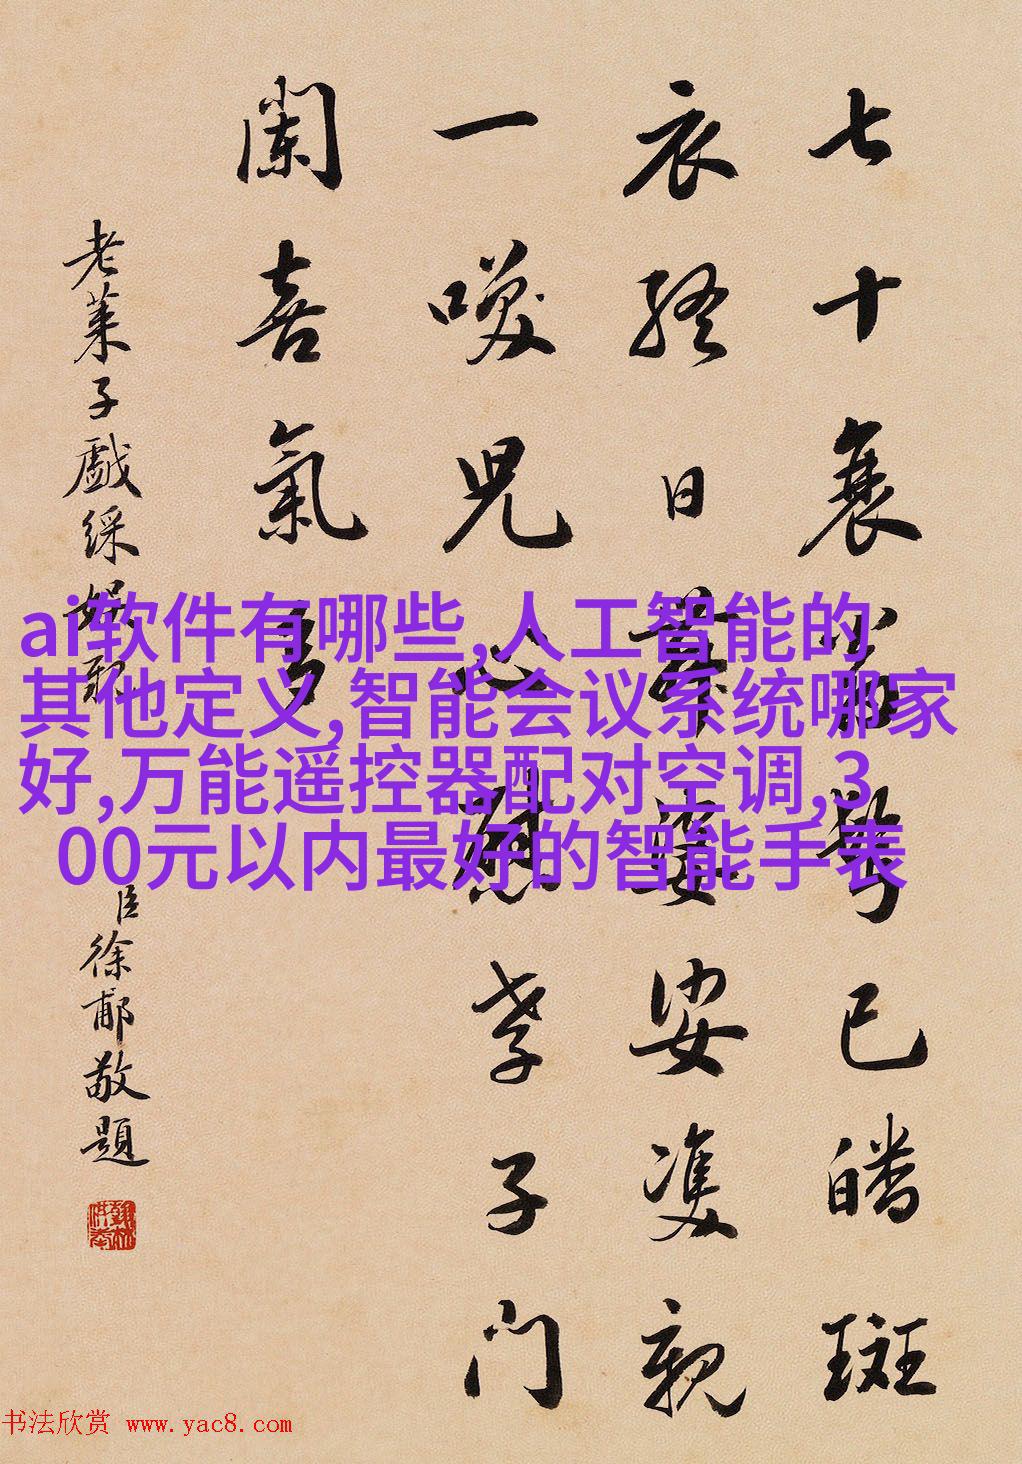 七十衰翁鬢已皤斑
衣終日舞婆娑雙親
一咲兒心慰孝子門
闌喜氣多
老萊子戲綵娛親
臣徐郙敬題
ai软件有哪些,人工智能的
其他定义,智能会议系统哪家
好,万能遥控器配对空调,3
00元以内最好的智能手表
书法欣赏 www.yac8.com